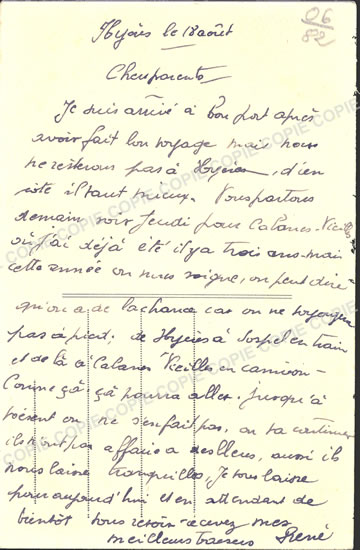 06
82
Hyères le 18 août
Chers parents
Je suis arrivé à bon port après
avoir fait bon voyage mais nous
ne resterons pas à Hyères, d'un
côté il faut mieux. Nous partons
demain soir Jeudi pour Cabanes-Vieilles
où j'ai déjà été il y a trois ans mais
cette année on nous soigne, on peut dire
qu'on a de la chance car on ne voyagera
pas à pied. de Hyères à Sospel en train
et de là à Cabanes Vieilles en camion
Comme ça, ça pourra aller. Jusqu'à
présent on ne s'en fait pas, on va continuer
ils n'ont pas affaire à des bleus, aussi ils
nous laisse tranquilles, Je vous laisse
pour aujourd'hui et en attendant de
bientôt vous revoir recevez mes
meilleurs baisers René
COPIE COPIE COPIE COPIE COPIE